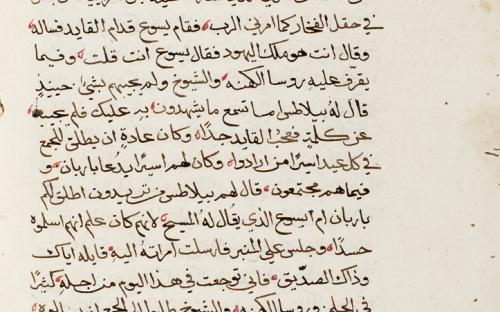 في حقل الفخار كما امرني الرب فقام يسوع قدام القايد فساله
وقال انت هو ملك اليهود فقال يسوع انت قلت وفيما
يقرف عليه روسا الكهنه والشيوخ ولم يجبهم بشي حينيذ
قال له بيلاطس اما تسمع ما يشهدون به عليك فلم يجيبه
عن كلمة فعجب القايد جدا وكان عادة ان يطلق للجمع
في كل عيد اسيرا من ارادوا وكان لهم اسيرا يدعا باربان و
فيما هم مجتمعون قال لهم بيلاطس من تريدون اطلق لكم
باربان ام ايسوع الذي يقال له المسيح لانه كان علم انهم اسلموه
حسدا وجلس علي المنبر فارسلت امراته اليه قايله اياك
وذاك الصديق فاني توجعت في هذا اليوم من اجله كثيرا
في الحلم وروسا الكهنه والشيوخ